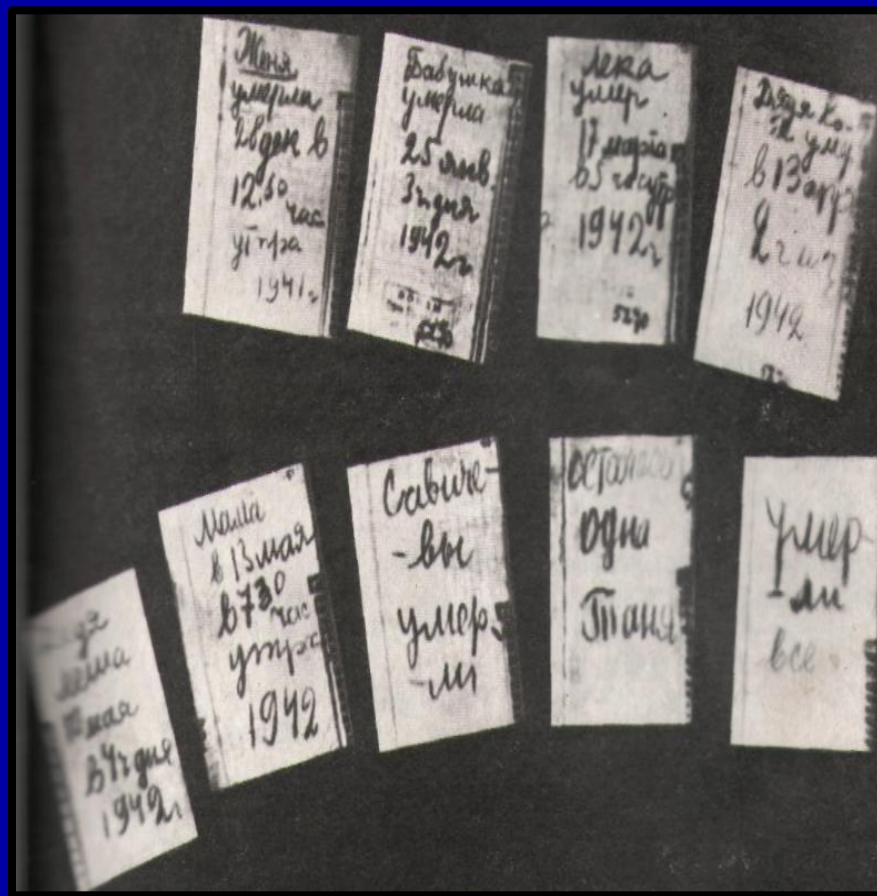 Женя
умерла
28 дек в
12.30
час
утра
1941 г
Бабушка
умерла
25 янв.
3 ч дня
1942 г
Лека
умер
17 марта
в 5 час утр
1942 г
Дядя
в 13 апр
2 ч
1942
Леша
10 мая
в 4 ч дня
1942 г
Мама
в 13 мая
в 730
час
утра
1942
Савиче-
-вы
умер
-ли
осталась
одна
Таня
умер-
-ли
все